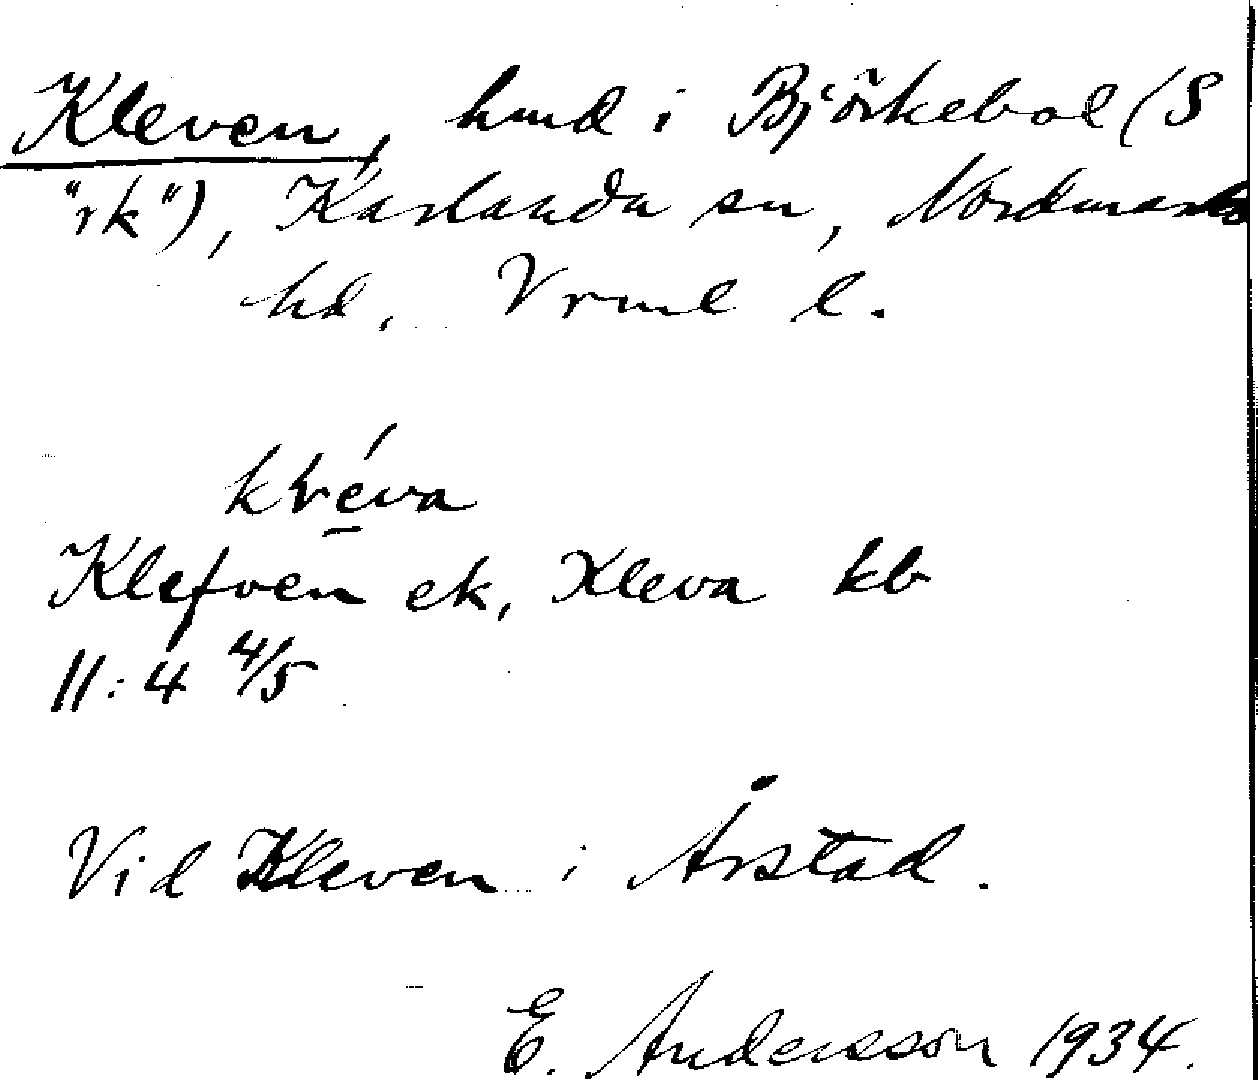 Kleven, hmd i Björkebol (S
"rk"), Karlanda sn, Nordmarks
hd. Vrml l.
Klefven ek, Kleva kb
11:4 4/5
Vid Kleven i Årstad.
E. Andersson 1934.